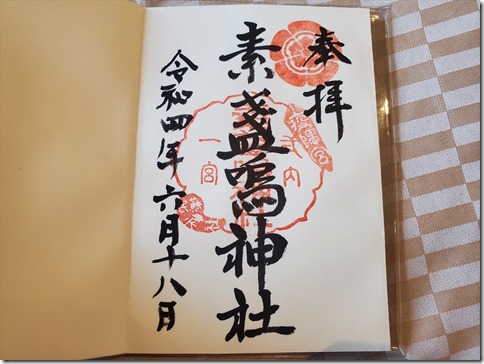 奉拝
素盞嗚神社
令和四年六月十八日
一宮